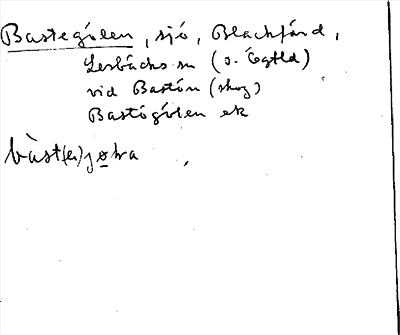 Bastegölen, sjö, Blackfård,
Lerbäcks sn (s. Ögtld)
vid Bastön (skog)
Bastögölen ek
bàst(ə)jøɫra